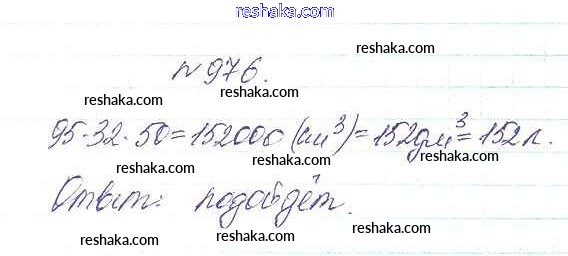 reshaka.com
reshaka.com
№976.
reshaka.com
reshaka.com
95·32·50=152000 (см³)=152дм³=152л.
reshaka.com
reshaka.com
Ответ: подойдёт.
reshaka.com
reshaka.com
reshaka.com